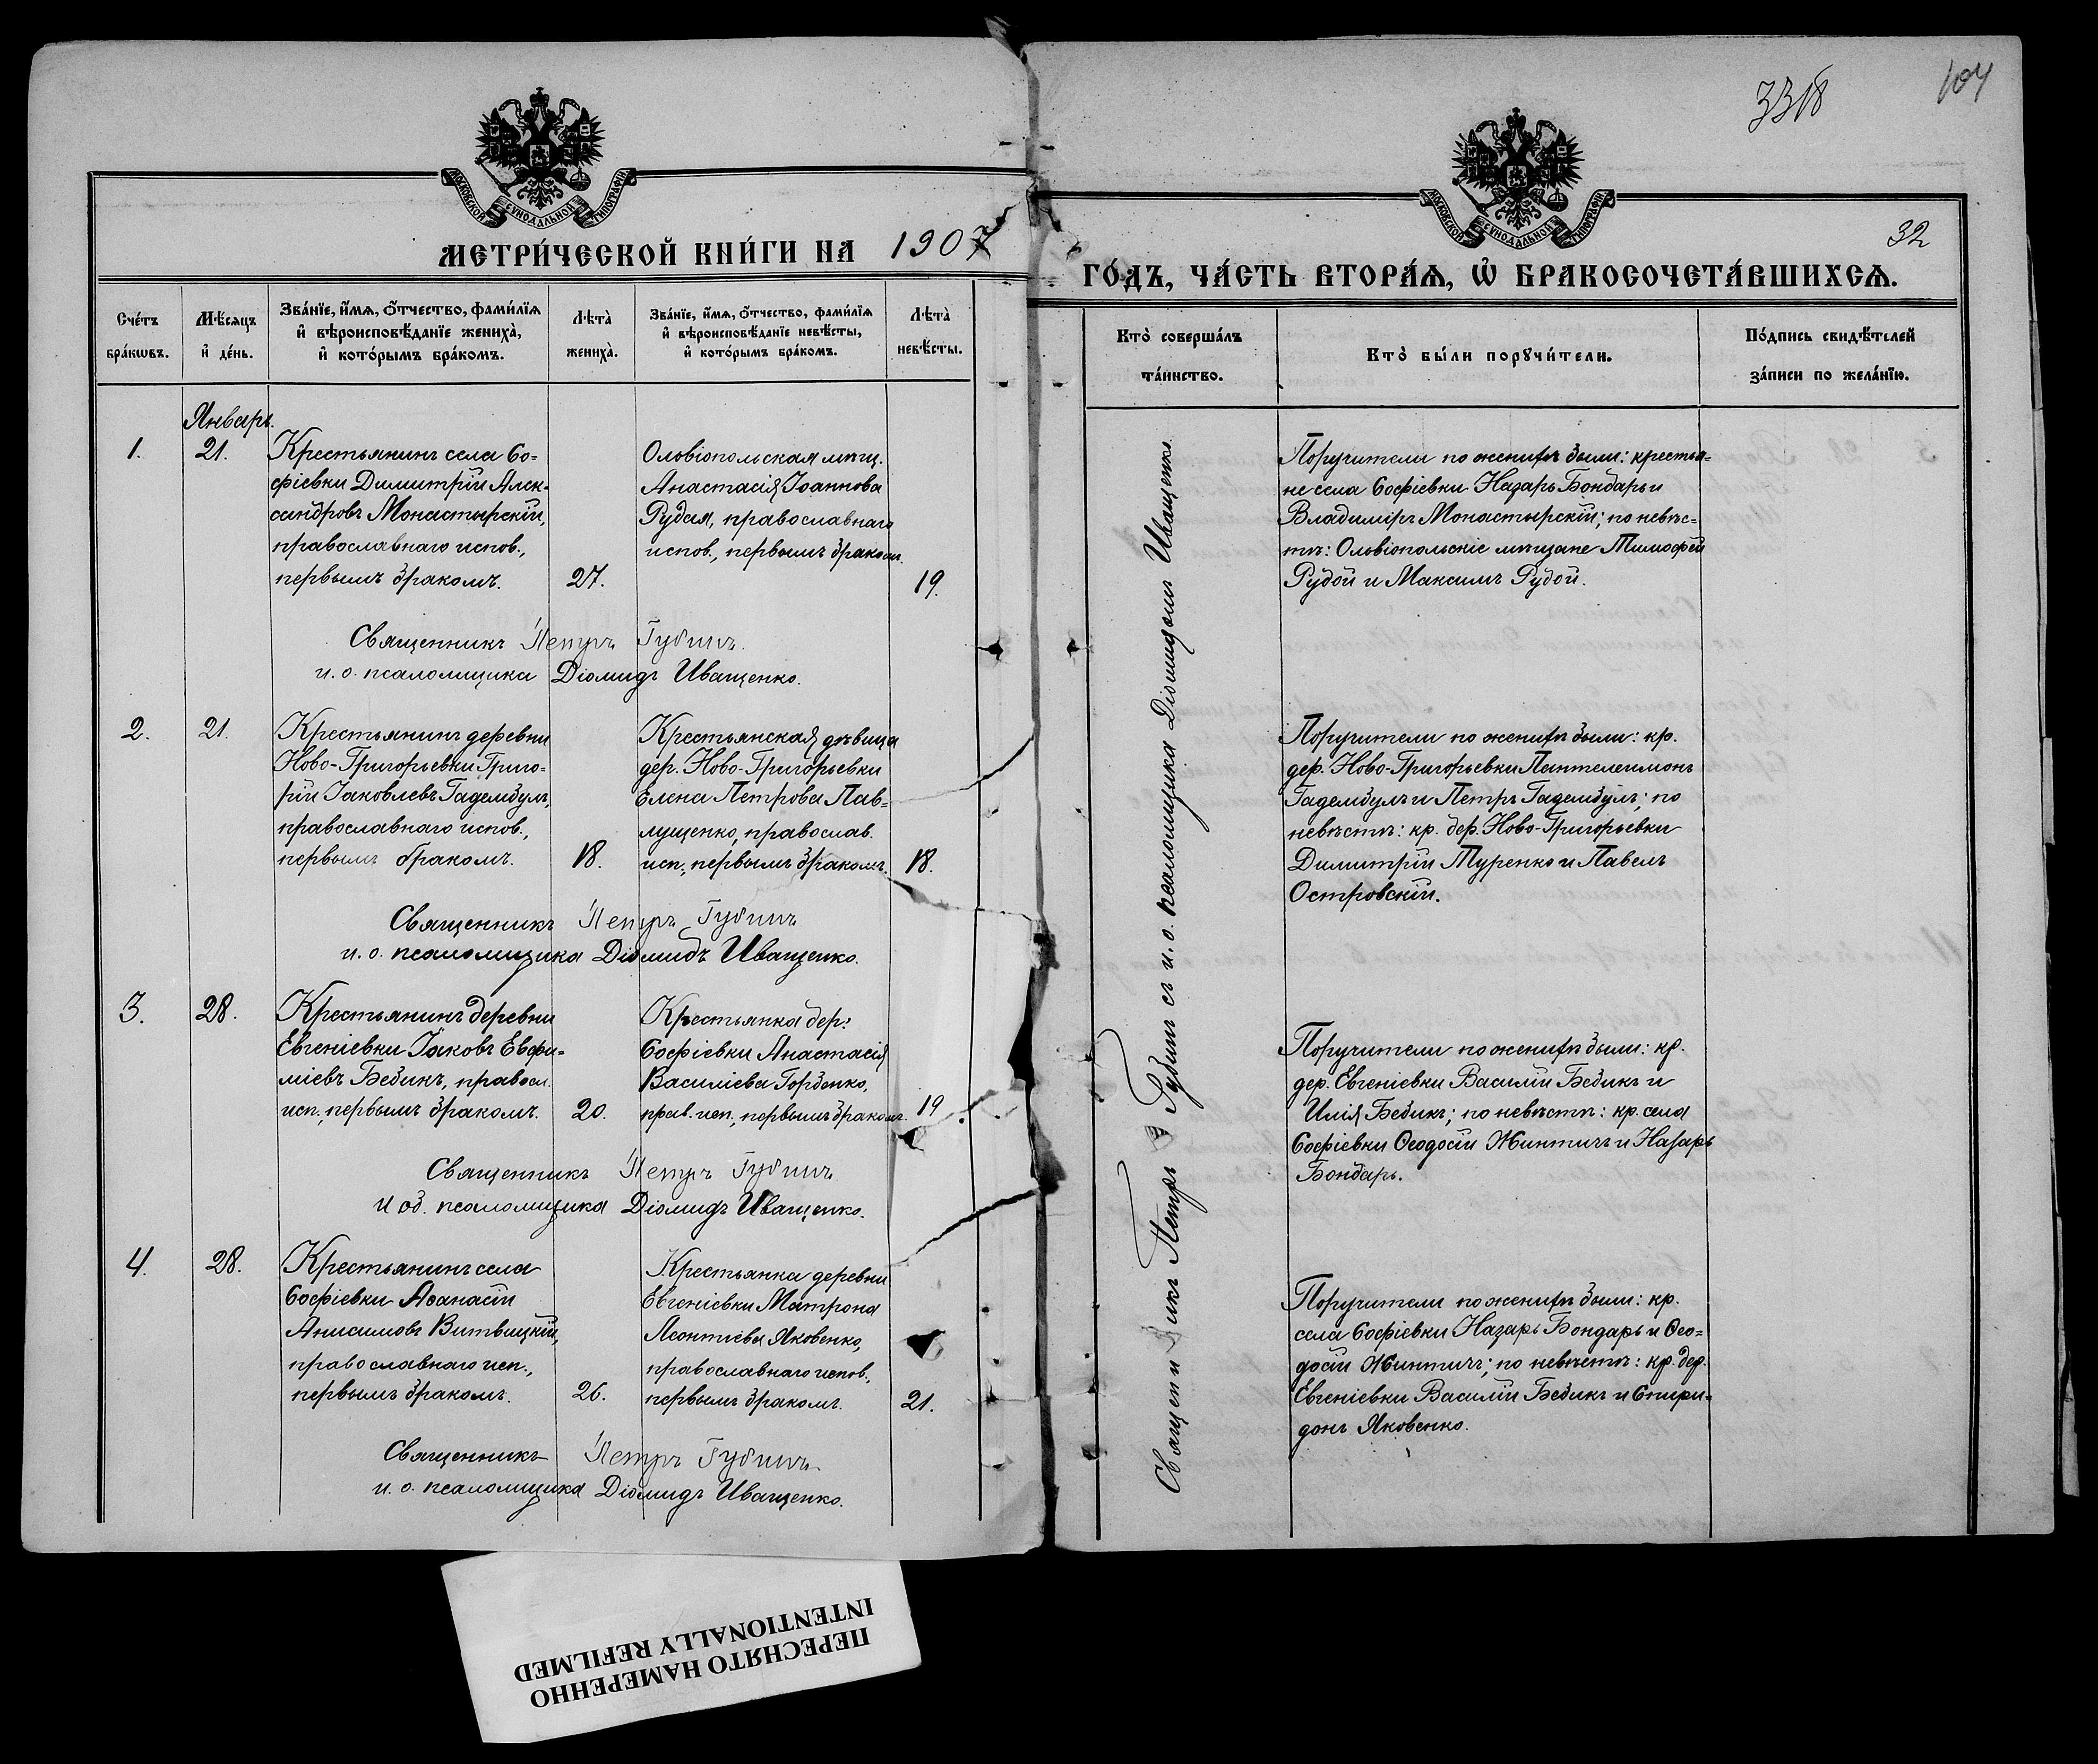 3318
104
32
МОСКОВСКОЙ СѴНОДАЛЬНОЙ ТИПОГРАФІИ
МОСКОВСКОЙ СѴНОДАЛЬНОЙ ТИПОГРАФІИ
МЕТРИ́ЧЕСКОЙ КНИ́ГИ НА 1907
ГО́ДЪ, ЧА́СТЬ ВТОРА́Ѧ, Ѡ҆ БРАКОСОЧЕТА́ВШИХСѦ.
Сче́тъ бра́кѡвъ.
Мѣ́сѧцъ и҆ де́нь.
Зва́нїе, и҆́мѧ, ѻ҆́тчество, фами́лїѧ
и҆ вѣроисповѣ́данїе жениха̀,
и҆ кото́рымъ бра́комъ.
Лѣта̀ жениха̀.
Зва́нїе, и҆́мѧ, ѻ҆́тчество, фами́лїѧ
и҆ вѣроисповѣ́данїе невѣ́сты,
и҆ кото́рымъ бра́комъ.
Лѣта̀ невѣ́сты.
Кто̀ соверша́лъ
та́инство.
Кто̀ бы́ли порꙋчи́тели.
По́дпись свидѣ́телей
за́писи по жела́нїю.
Январь.
1.
21.
Крестьянинъ села Со=
фіевки Димитрій Алек-
сандровъ Монастырскій,
православнаго испов.,
первымъ бракомъ.
27.
Ольвіопольская мѣщ.
Анастасія Іоаннова
Рудая, православнаго
испов., первымъ бракомъ.
19.
Поручители по женихѣ были: крестья=
не села Софіевки Назарь Бондарь и
Владиміръ Монастырскій; по невѣс=
тѣ: Ольвіопольскіе мѣщане Тимофей
Рудой и Максимъ Рудой.
Священникъ Петръ Губинъ.
и. о. псаломщика Діомидъ Иващенко.
2.
21.
Крестьянинъ деревни
Ново-Григорьевки Григо=
рій Іаковлевъ Гадембулъ,
православнаго испов.,
первымъ бракомъ.
18.
Крестьянская дѣвица
дер. Ново-Григорьевки
Елена Петрова Пав=
лущенко, православ.
исп., первымъ бракомъ.
18.
Поручители по женихѣ были: кр.
дер. Ново-Григорьевки Пантелеимонъ
Гадембулъ и Петръ Гадембулъ; по
невѣстѣ: кр. дер. Ново-Григорьевки
Димитрій Туренко и Павелъ
Островскій.
Священникъ Петръ Губинъ
и. о. псаломщика Діомидъ Иващенко.
3.
28.
Крестьянинъ деревни
Евгеніевки Іаковъ Евфи=
міевъ Бедикъ, правосл.
исп., первымъ бракомъ.
20.
Крестьянка дер.
Софіевки Анастасія
Василіева Горденко,
прав. исп., первымъ бракомъ.
19
Поручители по женихѣ были: кр.
дер. Евгеніевки Василій Бедикъ и
Илія Бедикъ; по невѣстѣ: кр. села
Софіевки Ѳеодосій Жинтичъ и Назарь
Бондарь.
Священникъ Петръ Губинъ
И об. псаломщика Діомидъ Иващенко.
4.
28.
Крестьянинъ села
Софіевки Аѳанасій
Анисимовъ Витвицкій,
православнаго исп.,
первымъ бракомъ.
26.
Крестьянка деревни
Евгеніевки Матрона
Леонтіева Яковенко,
православнаго испов.,
первымъ бракомъ.
21.
Поручители по женихѣ были: кр.
села Софіевки Назарь Бондарь и Ѳео=
досій Жинтичъ; по невѣстѣ: кр. дер.
Евгеніевки Василій Бедикъ и Спири=
донъ Яковенко.
Священникъ Петръ Губинъ.
и. о. псаломщика Діомидъ Иващенко.
Священникъ Петръ Губинъ съ и. о. псаломщика Діомидомъ Иващенко.
ПЕРЕСНЯТО НАМЕРЕННО
INTENTIONALLY REFILMED